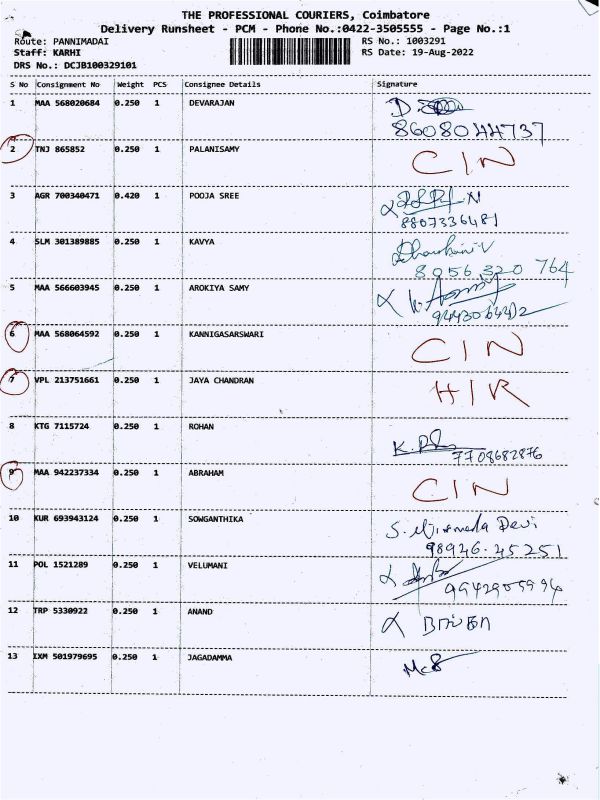 THE PROFESSIONAL COURIERS, Coimbatore
Delivery Runsheet - PCM - Phone No.:0422-3505555 - Page No.:1
Route: PANNIMADAI RS No.: 1003291
Staff: KARHI RS Date: 19-Aug-2022
DRS No.: DCJB100329101
S No Consignment No Weight PCS Consignee Details Signature
1 MAA 568020684 0.250 1 DEVARAJAN
8608044737
2 TNJ 865852 0.250 1 PALANISAMY CIN
3 AGR 700340471 0.420 1 POOJA SREE
8807336481
4 SLM 301389885 0.250 1 KAVYA
8056 320 764
5 MAA 566603945 0.250 1 AROKIYA SAMY
6 MAA 568064592 0.250 1 KANNIGASARSWARI CIN
7 VPL 213751661 0.250 1 JAYA CHANDRAN HIR
8 KTG 7115724 0.250 1 ROHAN
7708682876
9 MAA 942237334 0.250 1 ABRAHAM CIN
10 KUR 693943124 0.250 1 SOWGANTHIKA Devi
98946.45251
11 POL 1521289 0.250 1 VELUMANI
12 TRP 5330922 0.250 1 ANAND
13 IXM 501979695 0.250 1 JAGADAMMA